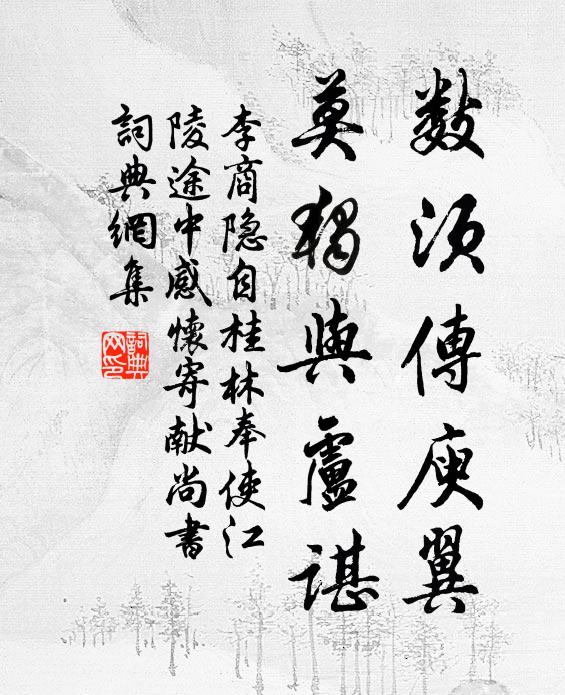 數須傳庾翼
莫獨與盧諶
李商隐自桂林奉使江
陵途中感懷寄献尚書
詞典網集
詞典
网印